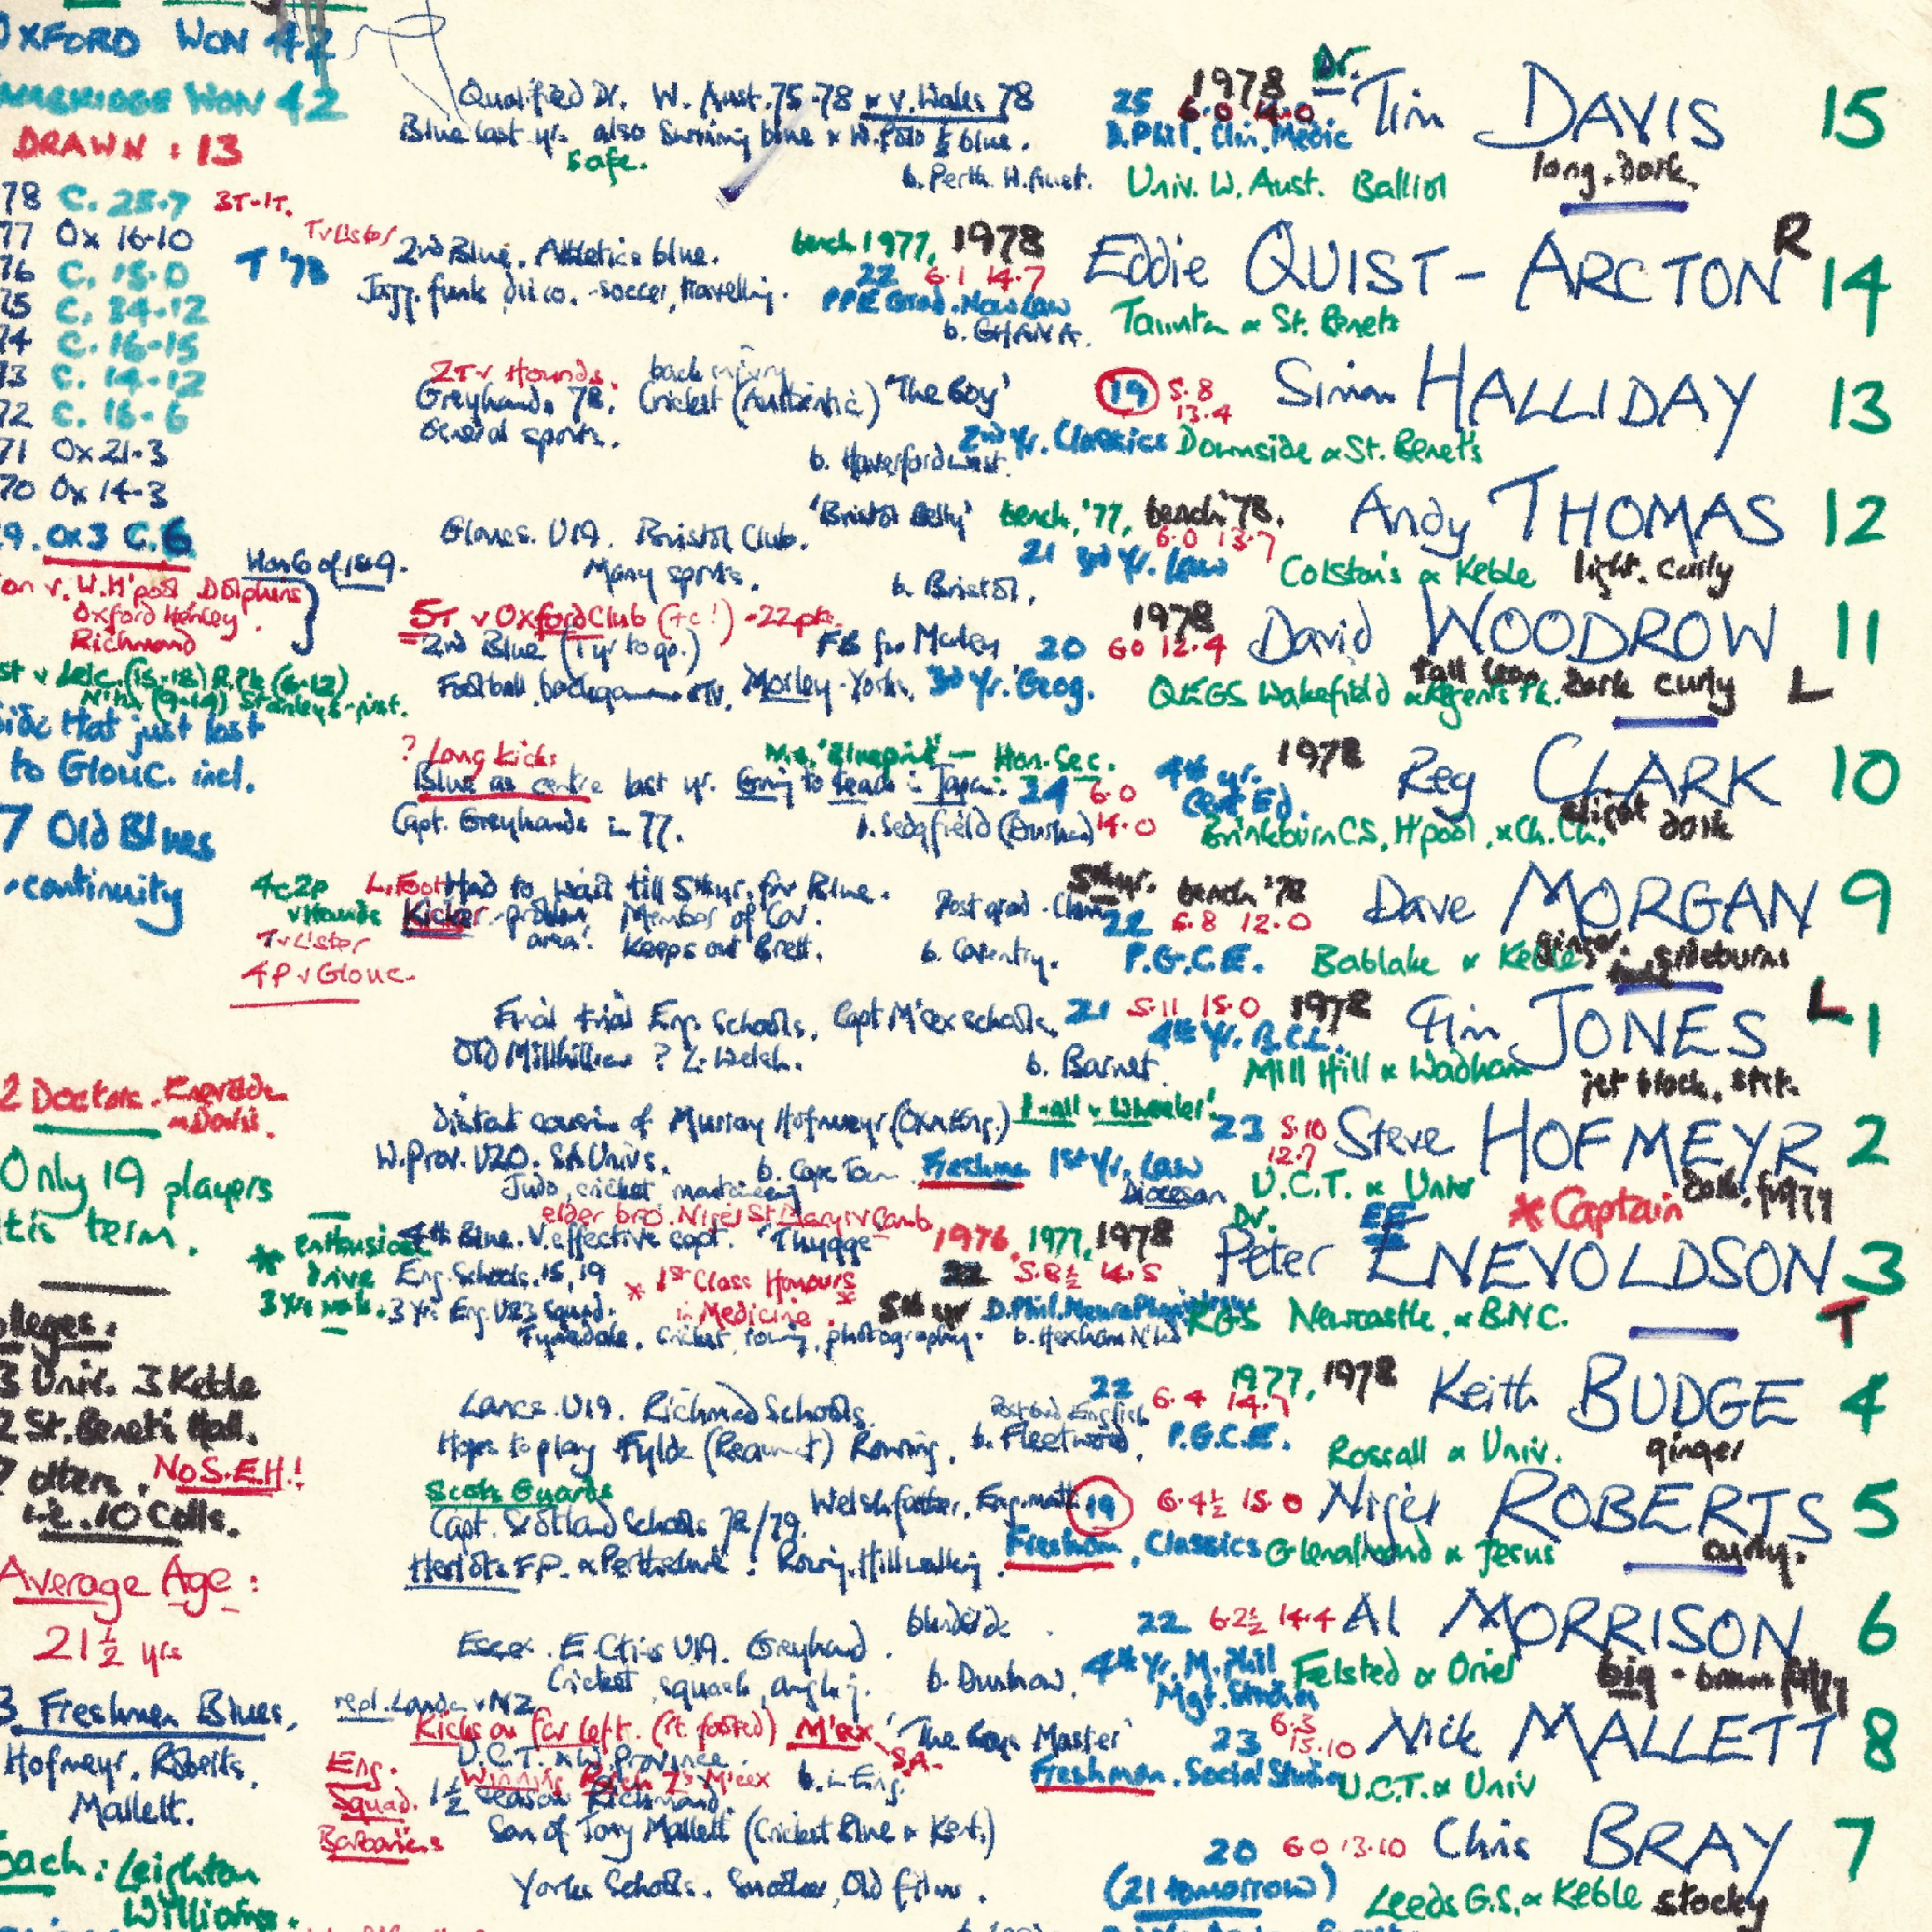 OXFORD WON 42
CAMBRIDGE WON 42
DRAWN : 13
78 C. 25-7 3T-1T.
77 Ox 16-10
76 C. 15-0
75 C. 34-12
74 C. 16-15
73 C. 14-12
72 C. 16-6
71 Ox 21-3
70 Ox 14-3
Ox 3 C. 6
Won 6 of last 9.
v. W.H'pool Dolphins
Oxford Henley
Richmond
v Leic. (15-18) R.Pk (6-12)
Side that just lost
to Glouc. incl.
7 Old Blues
continuity
2 Doctors. Enevoldson
Davis.
Only 19 players
this term.
Colleges.
3 Univ. 3 Keble
2 St. Benet's Hall.
7 others. No S.E.H.!
i.e. 10 Colls.
Average Age :
21½ yrs
3 Freshmen Blues.
Hofmeyr. Roberts.
Mallett.
Coach : Leighton
Williams.
Qualified Dr. W. Aust. 75-78 & v. Wales 78
25 1978 Dr. Tim DAVIS 15
6.0 14.0
Blue last yr. also Swimming blue & W.Polo ½ blue.
D.Phil. Clin. Medic
safe.
b. Perth. W.Aust. Univ. W. Aust. Balliol
long. dark.
T v Lister
T '78
2nd Blue. Athletics blue.
bench 1977, 1978 Eddie QUIST-ARCTON R 14
22 6.1 14.7
Jazz. funk disco. soccer, travelling.
PPE Grad. Now Law
b. GHANA. Taunton & St. Benets
2T v Hounds. back injury
Greyhounds 78. Cricket (Authentic) 'The Boy'
19 5.8 13.4 Simon HALLIDAY 13
General sports.
2nd Yr. Classics Downside & St. Benet's
b. Haverfordwest.
'Bristol Betty' bench, '77, bench '78. Andy THOMAS 12
6.0 13.7
Glouces. U19. Bristol Club.
21 3rd Yr. Law
Many sports.
b. Bristol. Colston's & Keble light. curly
5T v Oxford Club (+c!) -22pts.
2nd Blue (1 yr to go.) FB for Morley
20 6.0 12.4 1978 David WOODROW 11
Football, backgammon, TV. Morley-Yorks. 3rd Yr. Geog.
QEGS Wakefield & Regents Pk.
tall lean dark curly L
? Long kicks Mr. 'Blueprint' - Hon. Sec.
Blue as centre last yr. Going to teach in Japan.
24 6.0 14.0 4th yr. Cert Ed. 1978 Reg CLARK 10
Capt. Greyhounds in 77. b. Sedgfield (Durham)
Brinkburn C.S, H'pool, & Ch.Ch.
slight dark
4c 2p v Hounds
T v Lister
4P v Glouc.
L. Foot Had to wait till 5th yr. for Blue.
Kicker - problem area! Member of Cov.
Keeps out Brett.
Post grad. Chem
5th yr. bench '78 Dave MORGAN 9
22 5.8 12.0
b. Coventry. P.G.C.E. Bablake & Keble
ginger. sideburns
Final trial Eng. Schools. Capt M'sex schools.
21 5.11 15.0 1978 Tim JONES L 1
4th Yr. B.C.L.
Old Millhillian ? L. Welsh.
b. Barnet. Mill Hill & Wadham
jet black.
Distant cousin of Murray Hofmeyr (Oxn & Eng.)
23 5.10 12.7 Steve HOFMEYR 2
W.Prov. U20. SA Univs. b. Cape Town. Freshman 1st Yr. Law
Judo, cricket, mountaineering
Diocesan U.C.T. & Univ
dark, fuzzy
elder bro. Nigel St Mary's v Camb.
4th Blue. V. effective capt. "Thugge"
1976, 1977, 1978 Dr. Peter ENEVOLDSON 3
* Captain
EE
* enthusiast
drive
Eng. Schools. 15, 19
* 1st Class Honours
in Medicine. *
22 5.8½ 14.5
3 yrs Eng. U23 Squad.
5th yr D.Phil. Neuro Physiology
Tynedale. Cricket, rowing, photography. b. Hexham N'ld
RGS Newcastle, & B.N.C.
T
Lancs. U19. Richmond Schools.
22 6.4 14.7 1977, 1978 Keith BUDGE 4
Post Grad English
Hopes to play Fylde (Beaumont) Rowing.
b. Fleetwood. P.G.C.E. Rossall & Univ.
ginger
Scots Guards
Capt. Scotland Schools 78/79. Welsh father, Eng. moth.
19 6.4½ 15.0 Nigel ROBERTS 5
Heriots F.P. & Perthshire! Rowing. Hillwalking.
Freshman, Classics Glenalmond & Jesus
curly.
blindside
Essex. E. Cties U19. Greyhound.
22 6.2½ 14.4 Al MORRISON 6
Cricket, squash, angling.
b. Dunmow. 4th Yr. M.Phil Mgt. Studies
Felsted & Oriel
big - brown fuzzy
repl. London v NZ
Kicks on far left. (rt. footed) M'sex, S.A.
'The Gay Master'
23 6.3 15.10 Nick MALLETT 8
U.C.T. & W. Province.
Winning 7s M'sex
b. in Eng. Freshman. Social Studies U.C.T. & Univ
Eng. Squad.
Barbarians
1½ season Richmond.
Son of Tony Mallett (Cricket Blue & Kent.)
20 6.0 13.10 Chris BRAY 7
(21 tomorrow)
Yorks Schools. Snooker, Old films.
Leeds G.S. & Keble stocky